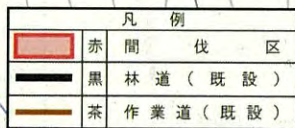 凡例
赤 間伐区
黒 林道(既設)
茶 作業道(既設)